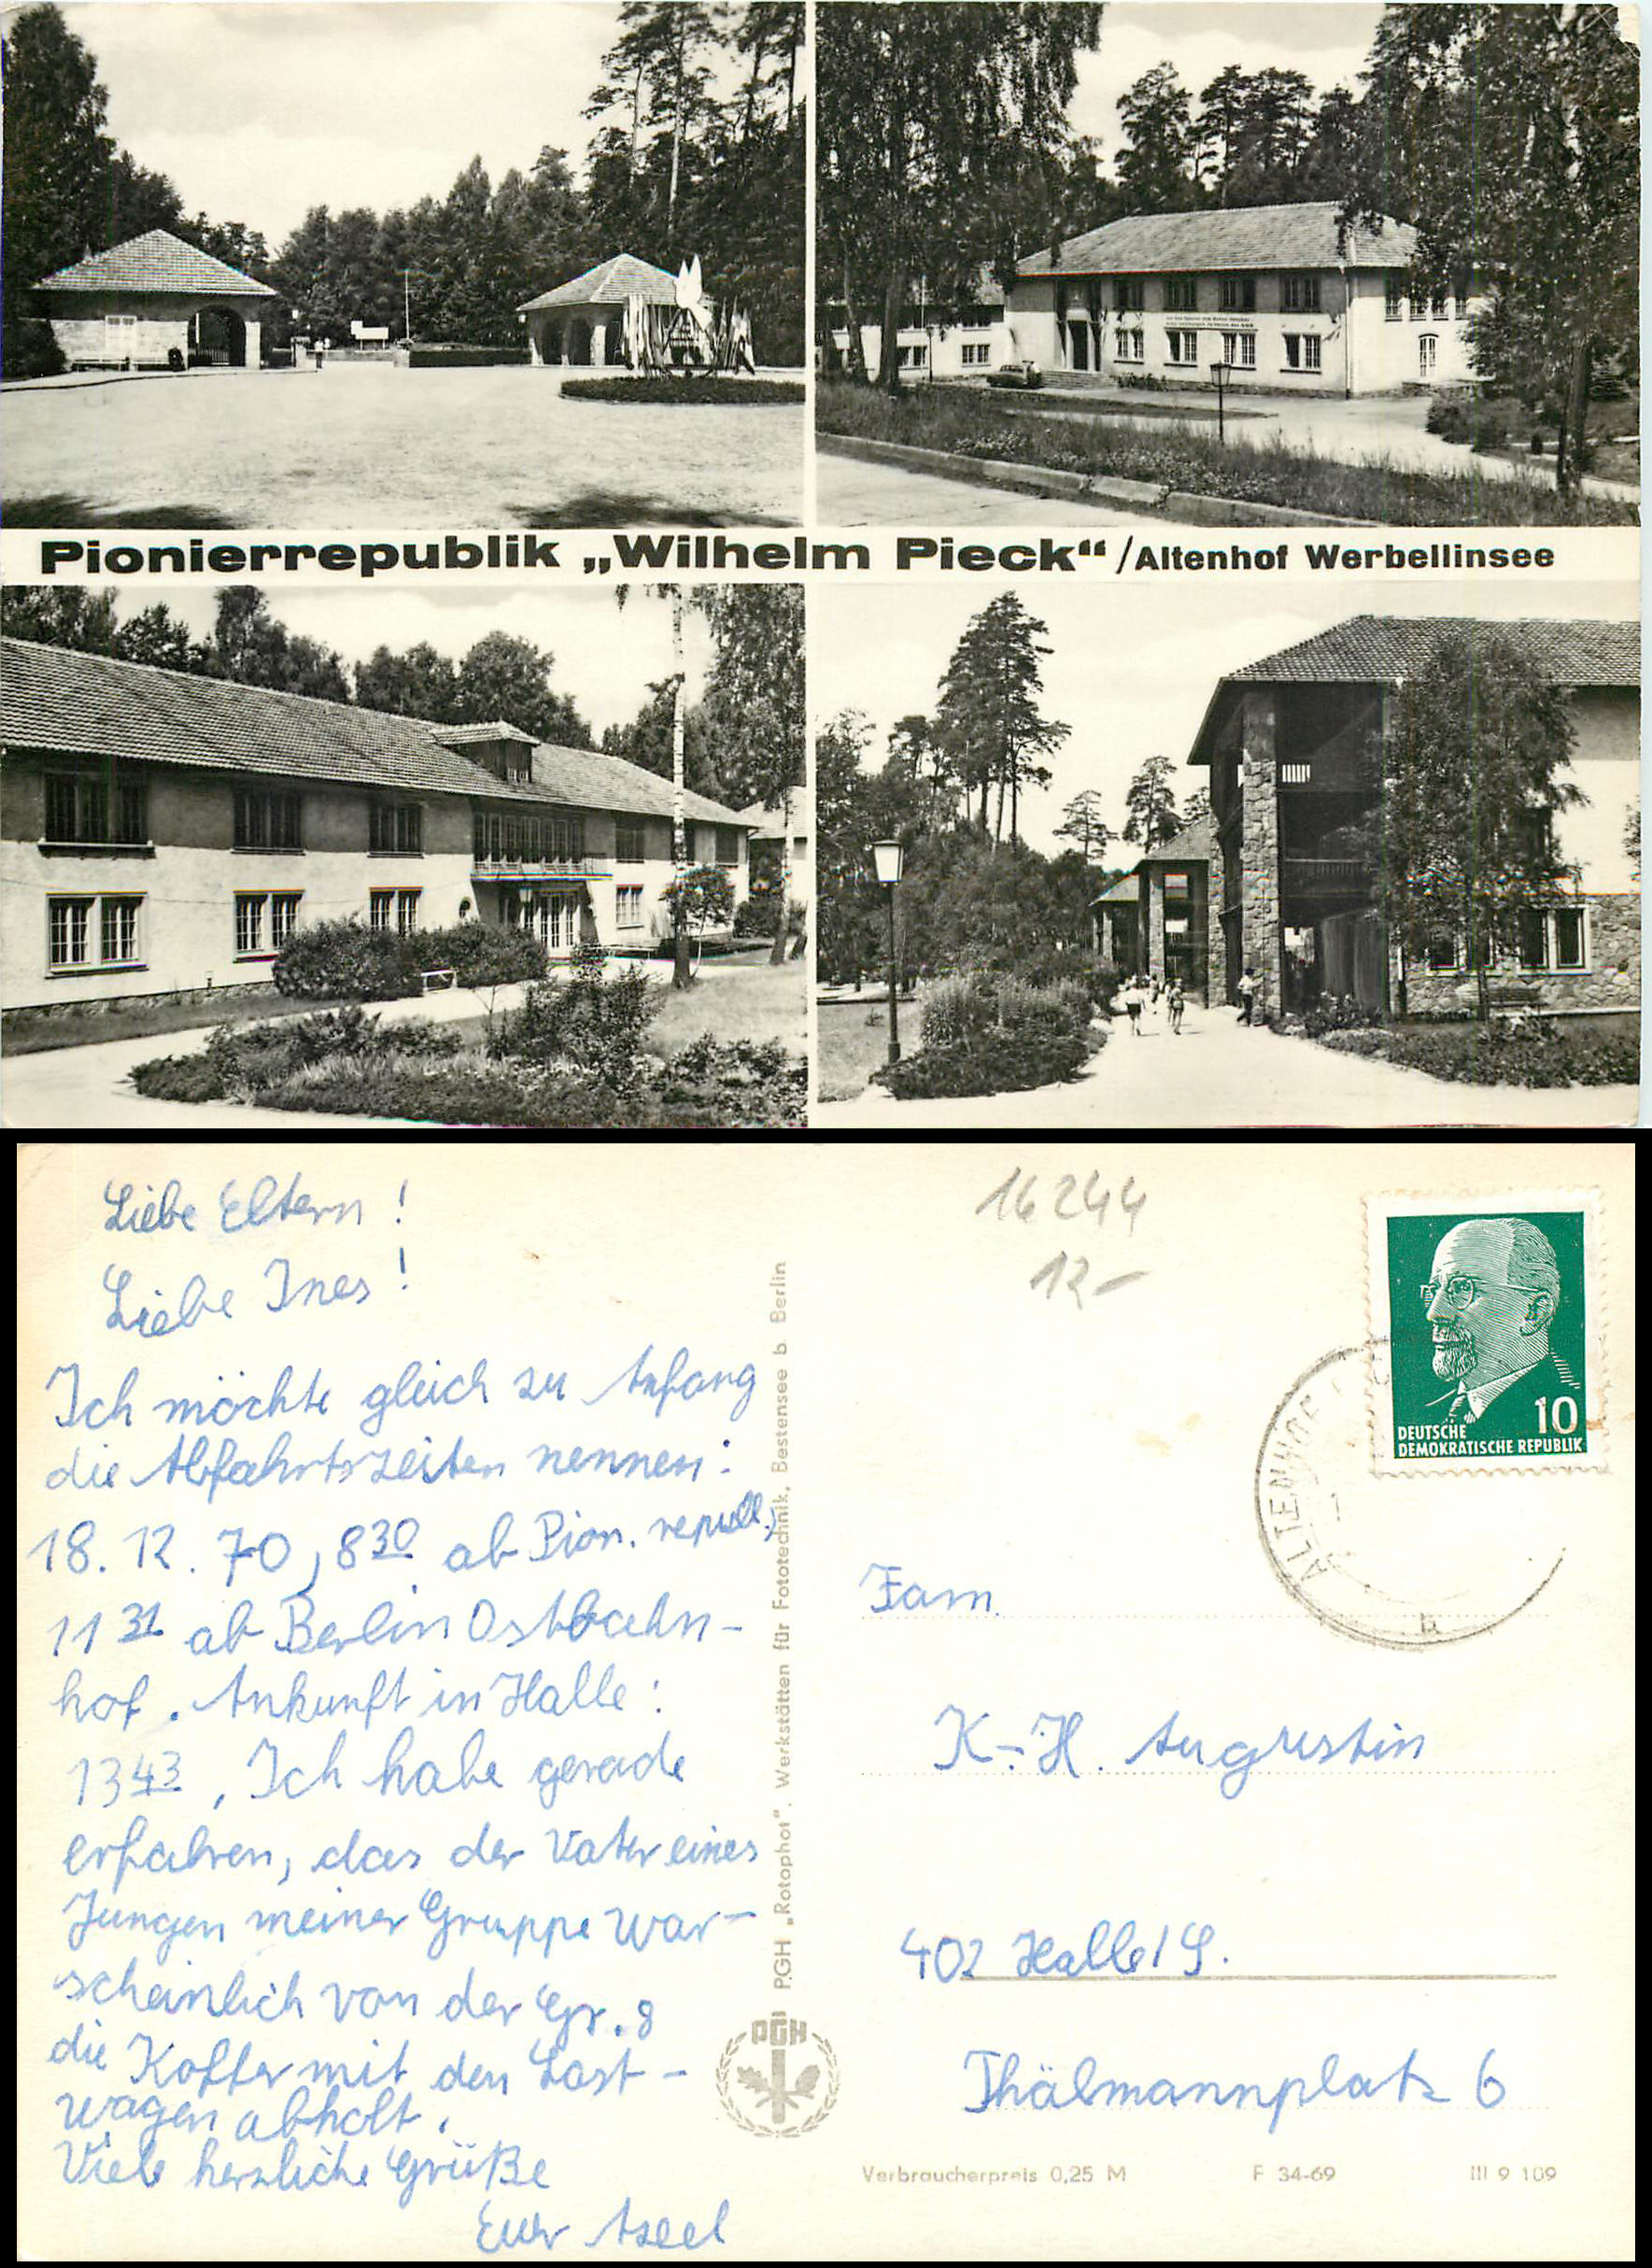 Pionierrepublik „Wilhelm Pieck“ / Altenhof Werbellinsee
Liebe Eltern!
Liebe Ines!
Ich möchte gleich zu Anfang
die Abfahrtszeiten nennen:
18.12.70, 8 30 ab Pion. republ,
11 31 ab Berlin Ostbahn-
hof. Ankunft in Halle:
13 43. Ich habe gerade
erfahren, das der Vater eines
Jungen meiner Gruppe war-
scheinlich von der Gr. 8
die Koffer mit den Last-
wagen abholt.
Viele herzliche Grüße
Euer Axel
PGH „Rotophot“, Werkstätten für Fototechnik, Bestensee b. Berlin
PGH
16244
12-
10
DEUTSCHE
DEMOKRATISCHE REPUBLIK
ALTENHOF
b
Fam.
K.-H. Augustin
402 Halle/S.
Thälmannplatz 6
Verbraucherpreis 0,25 M F 34-69 III 9 109